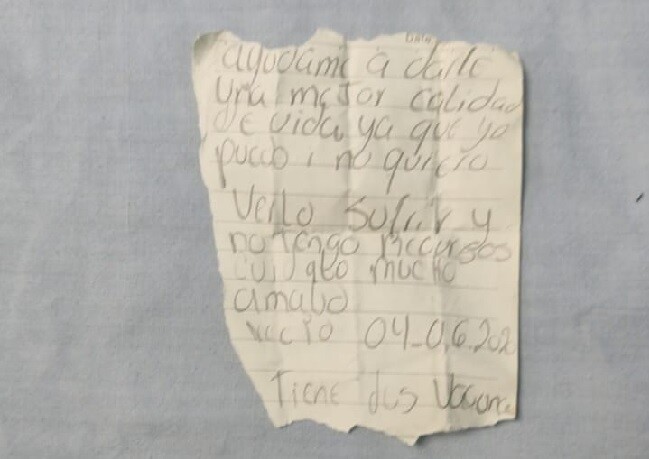 ayudame a darle
una mejor calidad
de vida ya que yo
puedo, no quiero
Verlo Sufrir y
no tengo recursos
cuidalo mucho
amalo
Nacio 04-06-202
Tiene dus Vacuna